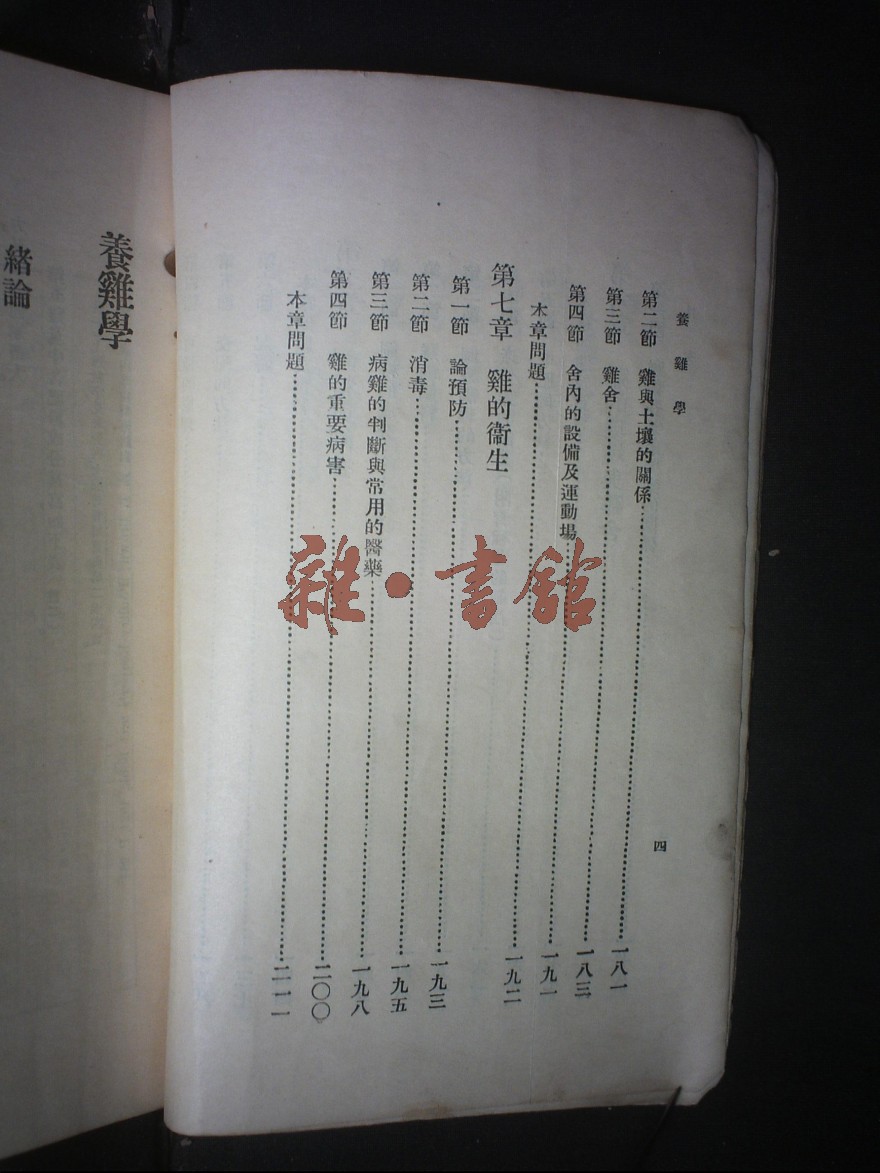 養雞學
四
第二節　雞與土壤的關係……一八一
第三節　雞舍……一八三
第四節　舍內的設備及運動場……一九一
本章問題……一九二
第七章　雞的衞生
第一節　論預防……一九三
第二節　消毒……一九五
第三節　病雞的判斷與常用的醫藥……一九八
第四節　雞的重要病害……二〇〇
本章問題……二一一
養雞學
緒論
雜·書館